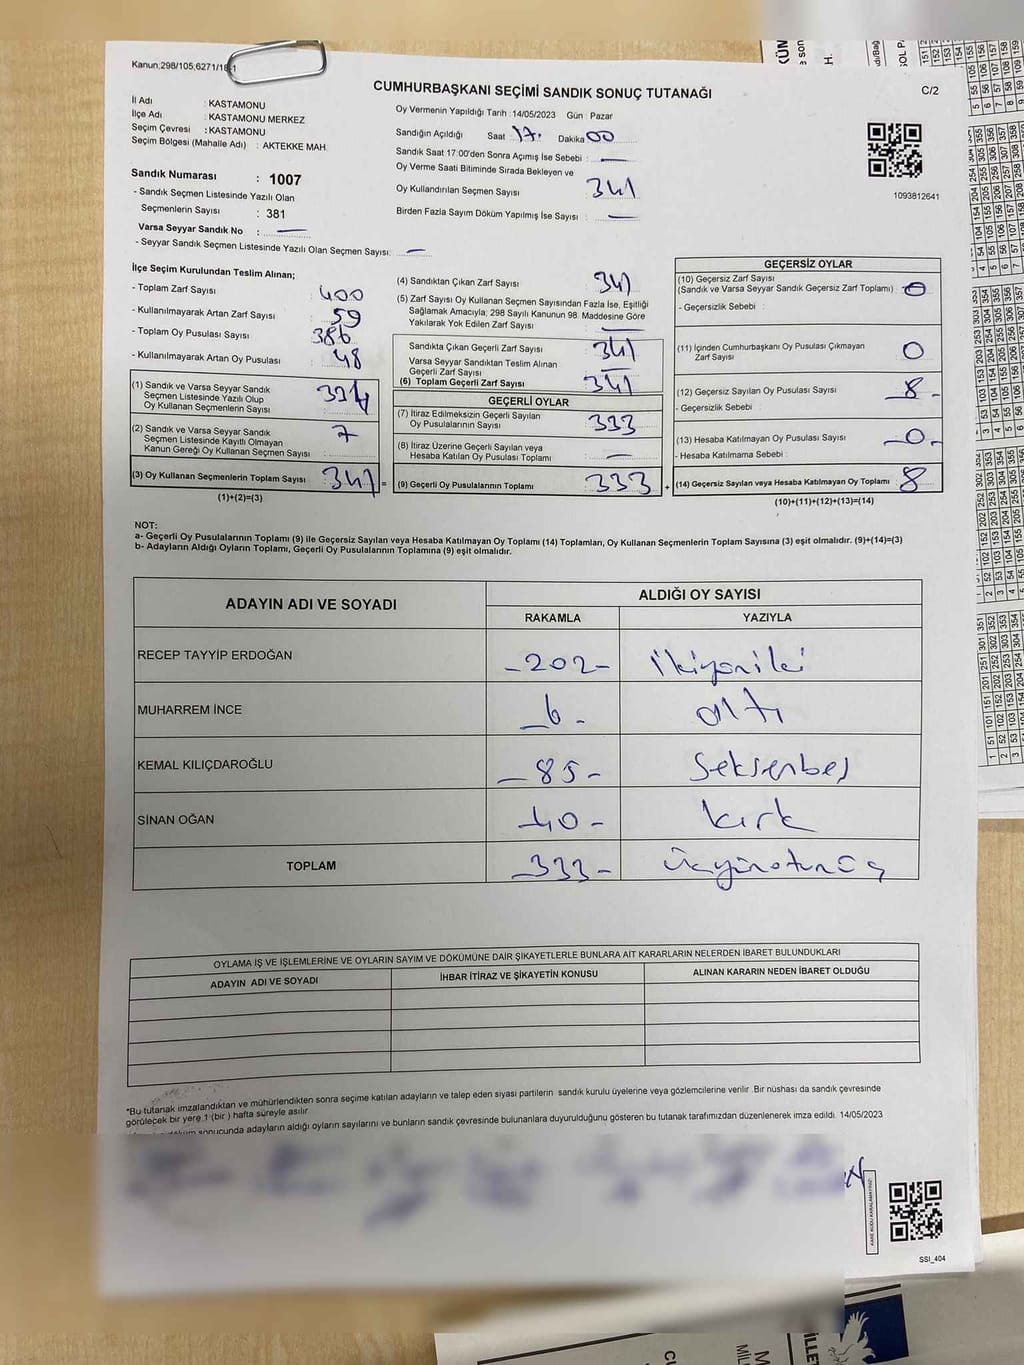 Kanun:298/105;6271/18-1
CUMHURBAŞKANI SEÇİMİ SANDIK SONUÇ TUTANAĞI
C/2
İl Adı : KASTAMONU
İlçe Adı : KASTAMONU MERKEZ
Seçim Çevresi : KASTAMONU
Seçim Bölgesi (Mahalle Adı) : AKTEKKE MAH.
Sandık Numarası : 1007
- Sandık Seçmen Listesinde Yazılı Olan
Seçmenlerin Sayısı : 381
Varsa Seyyar Sandık No : —
- Seyyar Sandık Seçmen Listesinde Yazılı Olan Seçmen Sayısı: —
Oy Vermenin Yapıldığı Tarih : 14/05/2023 Gün : Pazar
Sandığın Açıldığı Saat 17. Dakika 00
Sandık Saat 17:00'den Sonra Açımış İse Sebebi : —
Oy Verme Saati Bitiminde Sırada Bekleyen ve
Oy Kullandırılan Seçmen Sayısı 341
Birden Fazla Sayım Döküm Yapılmış İse Sayısı : —
1093812641
İlçe Seçim Kurulundan Teslim Alınan;
- Toplam Zarf Sayısı : 400
- Kullanılmayarak Artan Zarf Sayısı : 59
- Toplam Oy Pusulası Sayısı : 386
- Kullanılmayarak Artan Oy Pusulası : 48
(1) Sandık ve Varsa Seyyar Sandık
Seçmen Listesinde Yazılı Olup
Oy Kullanan Seçmenlerin Sayısı : 334
(2) Sandık ve Varsa Seyyar Sandık
Seçmen Listesinde Kayıtlı Olmayan
Kanun Gereği Oy Kullanan Seçmen Sayısı : 7
(3) Oy Kullanan Seçmenlerin Toplam Sayısı : 341 =
(1)+(2)=(3)
(4) Sandıktan Çıkan Zarf Sayısı 341
(5) Zarf Sayısı Oy Kullanan Seçmen Sayısından Fazla İse, Eşitliği
Sağlamak Amacıyla; 298 Sayılı Kanunun 98. Maddesine Göre
Yakılarak Yok Edilen Zarf Sayısı : —
Sandıkta Çıkan Geçerli Zarf Sayısı 341
Varsa Seyyar Sandıktan Teslim Alınan
Geçerli Zarf Sayısı —
(6) Toplam Geçerli Zarf Sayısı 341
GEÇERLİ OYLAR
(7) İtiraz Edilmeksizin Geçerli Sayılan
Oy Pusulalarının Sayısı : 333
(8) İtiraz Üzerine Geçerli Sayılan veya
Hesaba Katılan Oy Pusulası Toplamı : —
(9) Geçerli Oy Pusulalarının Toplamı : 333 +
GEÇERSİZ OYLAR
(10) Geçersiz Zarf Sayısı
(Sandık ve Varsa Seyyar Sandık Geçersiz Zarf Toplamı) : 0
- Geçersizlik Sebebi :
(11) İçinden Cumhurbaşkanı Oy Pusulası Çıkmayan
Zarf Sayısı : 0
(12) Geçersiz Sayılan Oy Pusulası Sayısı : 8 -
- Geçersizlik Sebebi :
(13) Hesaba Katılmayan Oy Pusulası Sayısı - 0 -
- Hesaba Katılmama Sebebi :
(14) Geçersiz Sayılan veya Hesaba Katılmayan Oy Toplamı : 8
(10)+(11)+(12)+(13)=(14)
NOT:
a- Geçerli Oy Pusulalarının Toplamı (9) ile Geçersiz Sayılan veya Hesaba Katılmayan Oy Toplamı (14) Toplamları, Oy Kullanan Seçmenlerin Toplam Sayısına (3) eşit olmalıdır. (9)+(14)=(3)
b- Adayların Aldığı Oyların Toplamı, Geçerli Oy Pusulalarının Toplamına (9) eşit olmalıdır.
ADAYIN ADI VE SOYADI
ALDIĞI OY SAYISI
RAKAMLA YAZIYLA
RECEP TAYYİP ERDOĞAN -202- ikiyüziki
MUHARREM İNCE -6- altı
KEMAL KILIÇDAROĞLU -85- Seksenbeş
SİNAN OĞAN -40- kırk
TOPLAM -333- üçyüzotuzüç
OYLAMA İŞ VE İŞLEMLERİNE VE OYLARIN SAYIM VE DÖKÜMÜNE DAİR ŞİKAYETLERLE BUNLARA AİT KARARLARIN NELERDEN İBARET BULUNDUKLARI
ADAYIN ADI VE SOYADI İHBAR İTİRAZ VE ŞİKAYETİN KONUSU ALINAN KARARIN NEDEN İBARET OLDUĞU
*Bu tutanak imzalandıktan ve mühürlendikten sonra seçime katılan adayların ve talep eden siyasi partilerin sandık kurulu üyelerine veya gözlemcilerine verilir .Bir nüshası da sandık çevresinde
görülecek bir yere 1 (bir ) hafta süreyle asılır.
sonucunda adayların aldığı oyların sayılarını ve bunların sandık çevresinde bulunanlara duyurulduğunu gösteren bu tutanak tarafımızdan düzenlenerek imza edildi. 14/05/2023
KARE KODU KARALAMAYINIZ!
SSI_404